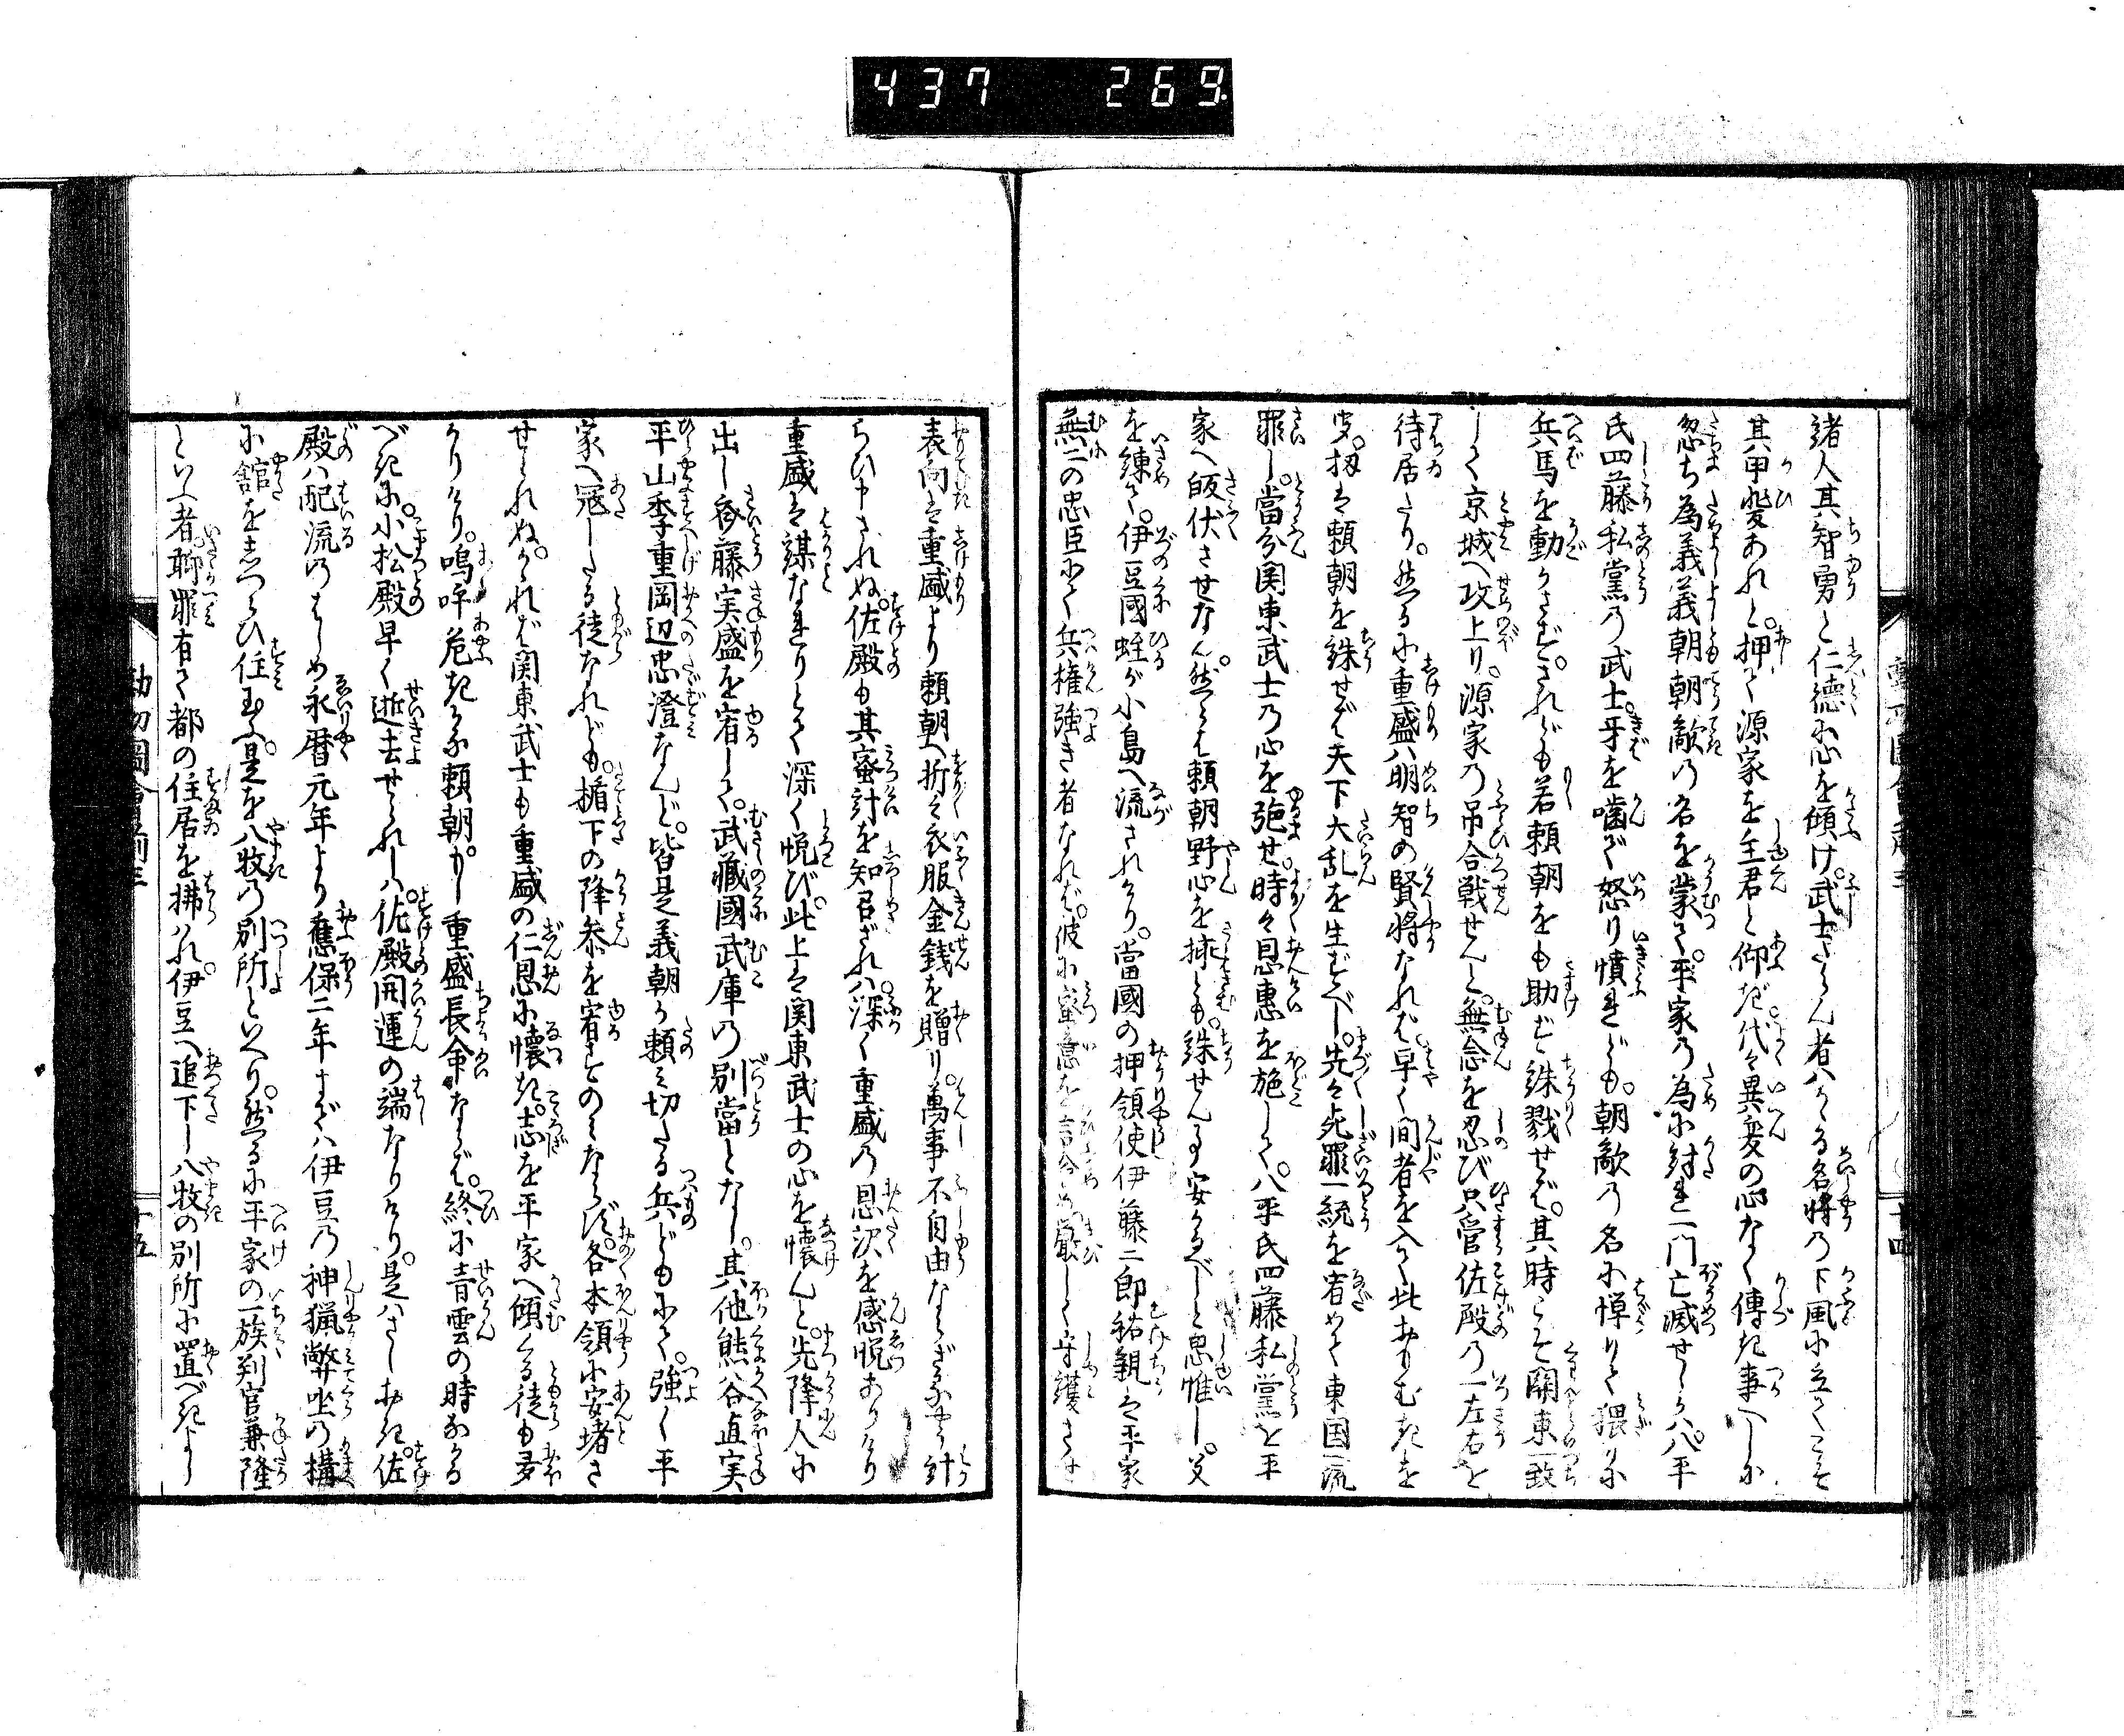 437 269
諸人其智勇と仁徳に心を傾け。武士たらん者はかゝる名将の下風に立てこそ
其甲斐あれと。押て源家を主君と仰ぎ。代々異変の心なく傳き事へしに
忽ち為義義朝朝敵の名を蒙て。平家の為に討れ一門亡滅せしかば。八平
氏四藤私黨の武士。牙を噛で怒り憤れども。朝敵の名に憚りて猥りに
兵馬を動かさず。されども若頼朝をも助けず誅戮せば。其時こそ関東一致
して京城へ攻上り。源家の吊合戦せんと。無念を忍び只管佐殿の一左右を
待居たり。然るに重盛は明智の賢将なれば。早く間者を入て此おもむきを
察。扨は頼朝を誅せば天下大乱を生ずべし。先々死罪一統を宥めて東国へ流
罪し。當分関東武士の心を弛せ。時々恩惠を施して。八平氏四藤私黨を平
家へ皈伏させなん。然らば頼朝野心を挿とも。誅せんは安かるべしと思惟し。父
を練て。伊豆國蛭が小島へ流されけり。當國の押領使伊藤二郎祐親は平家
無二の忠臣にて兵権強き者なれば。彼に蜜意を言含め厳しく守護させ
表向は重盛より頼朝へ折々衣服金銭を贈り。萬事不自由ならざるやう計
らひ申されぬ。佐殿も其蜜計を知召ざれば。深く重盛の恩沢を感悦ありけり
重盛は謀なれりとて深く悦び。此上は関東武士の心を懐んと。先降人に
出し斎藤実盛を宥して。武藏國武庫の別當となし。其他熊谷直実
平山季重岡辺忠澄なんど。皆是義朝が頼み切たる兵どもにて。強く平
家へ冦したる徒なれども。楯下の降参を宥すのみならず。各本領に安堵さ
せられぬ。かゝれば関東武士も重盛の仁恩に懐き。志を平家へ傾くる徒も多
かりけり。嗚呼危きかな頼朝。かし重盛長命ならば。終に青雲の時なかる
べきに。小松殿早く逝去せられしは。佐殿開運の端なりけり。是はさしおき。佐
殿は配流のはじめ永暦元年より應保二年までは伊豆の神猟幣坐の構
に舘をしつらひ住玉ふ。是を八牧の別所といへり。然るに平家の一族判官兼隆
といふ者。聊罪有て都の住居を拂はれ。伊豆へ追下し八牧の別所に置べきよし
十四
十五